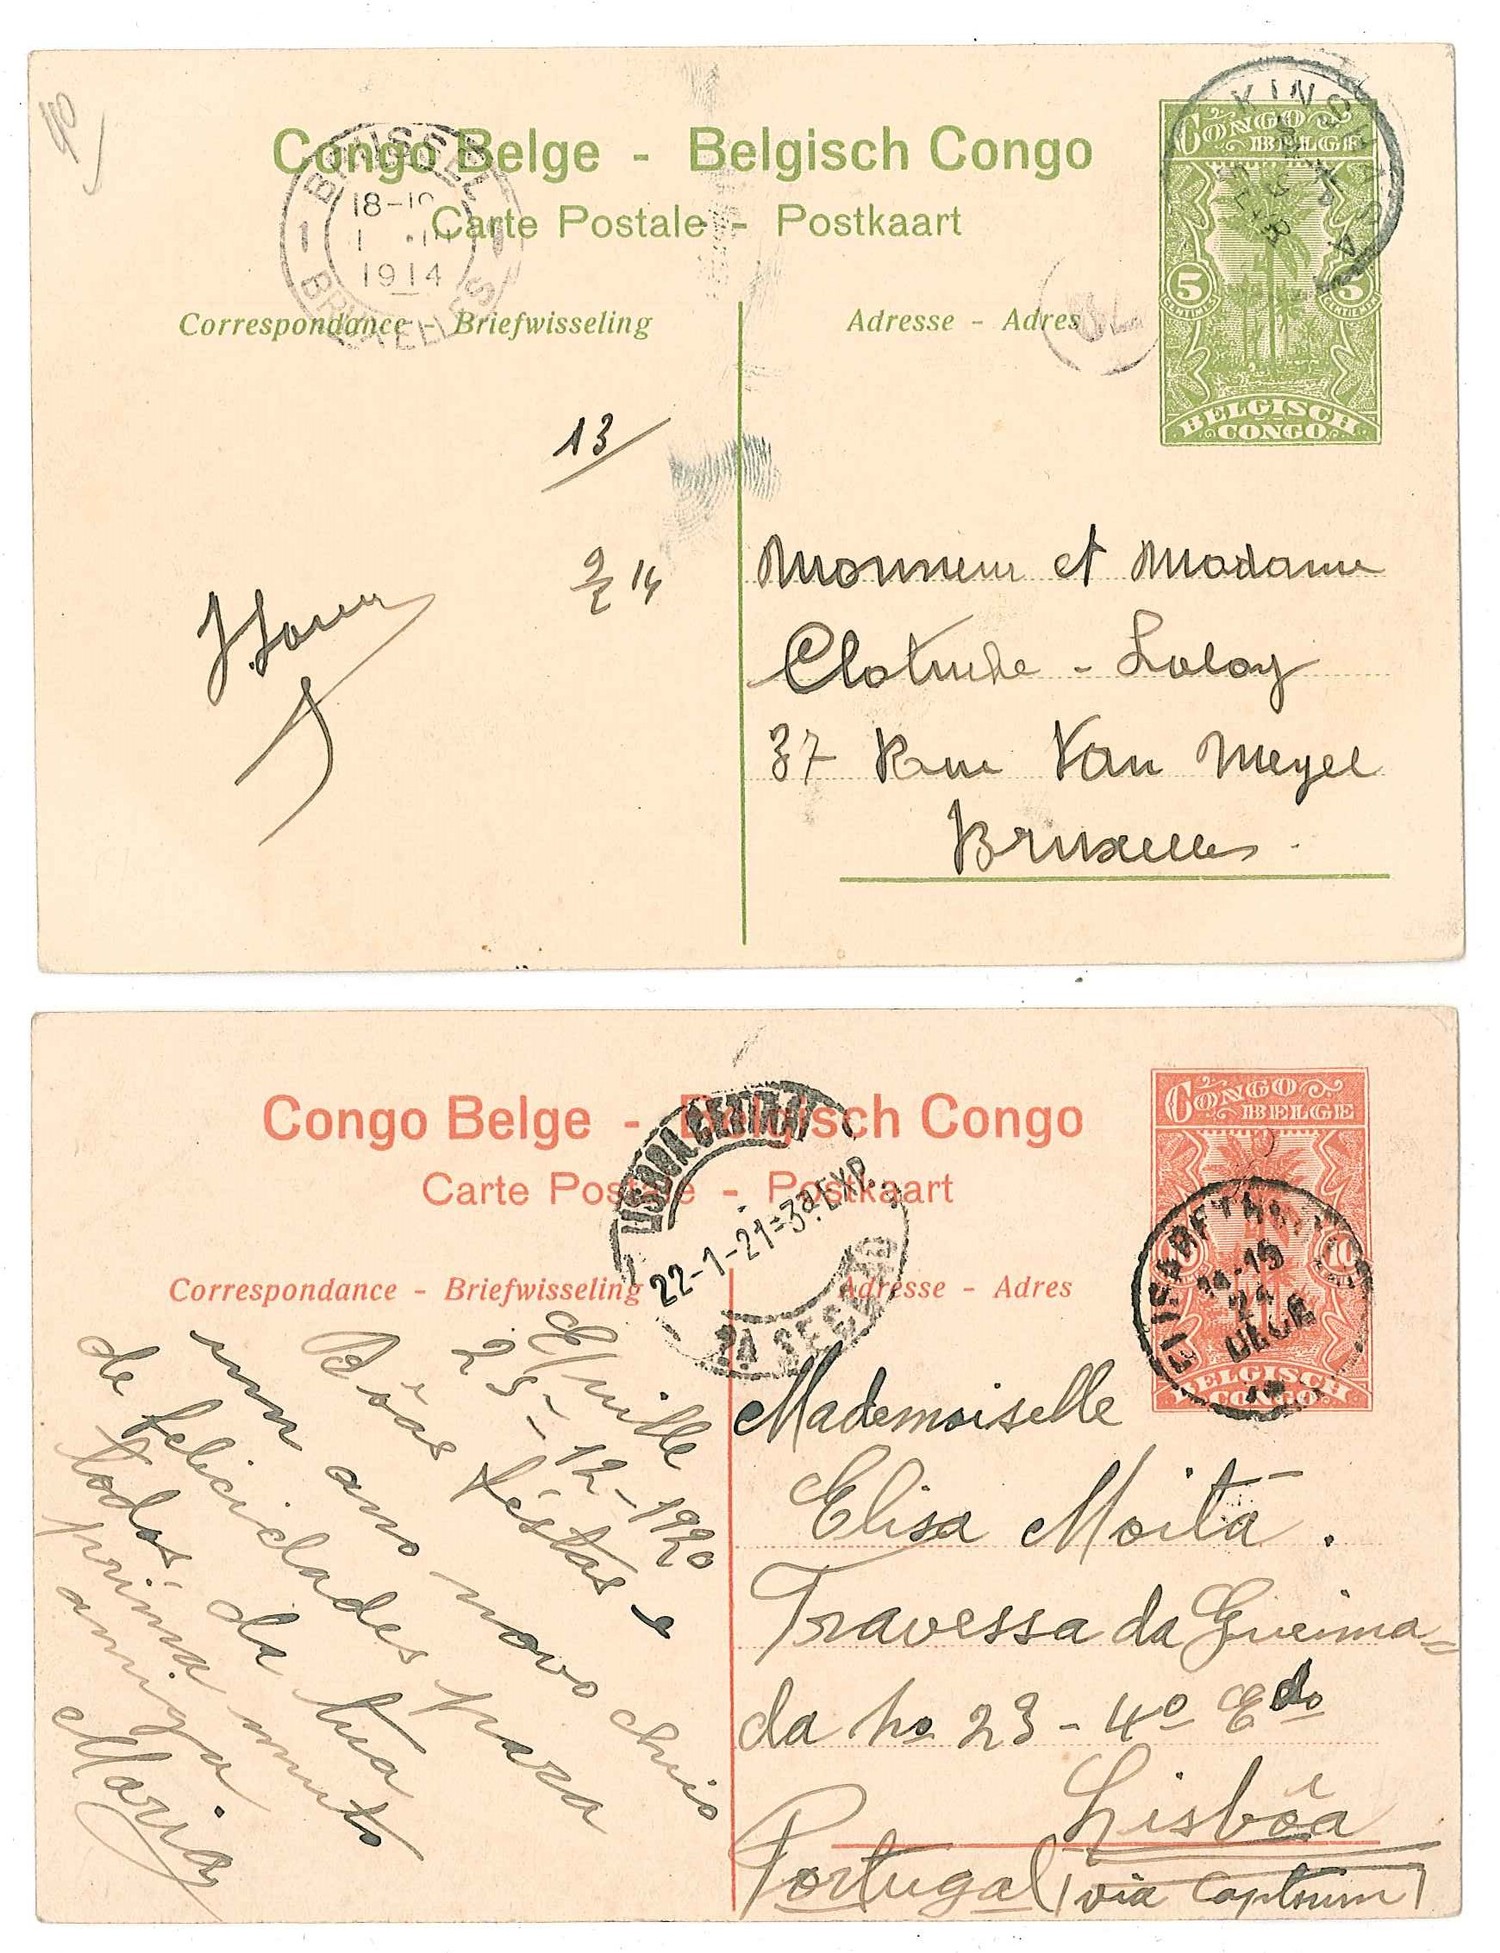 Congo Belge - Belgisch Congo
Carte Postale - Postkaart
BRUSSEL
18-19
1914
BRUXELLES
Correspondance - Briefwisseling
Adresse - Adres
CONGO BELGE
5 5
CENTIMES
BELGISCH CONGO
KINSHASA
13
9/2 14
Monsieur et Madame
37 Rue Van Meyel
Bruxelles.
Congo Belge - Belgisch Congo
Carte Postale - Postkaart
LISBOA CENTRAL
22-1-21=3ª.EXP.
2A SECCAO
Correspondance - Briefwisseling
Adresse - Adres
CONGO BELGE
BELGISCH CONGO
14-15
24
DECE
E/ville
25-12-1920
Bôas féstas e
um ano novo cheio
de felicidades para
todos da tua
prima muito
amiga
Maria
Mademoiselle
Elisa Moita.
Travessa da Gueima=
da no 23 - 4º Edo
Lisbôa
Portugal (via Captown)